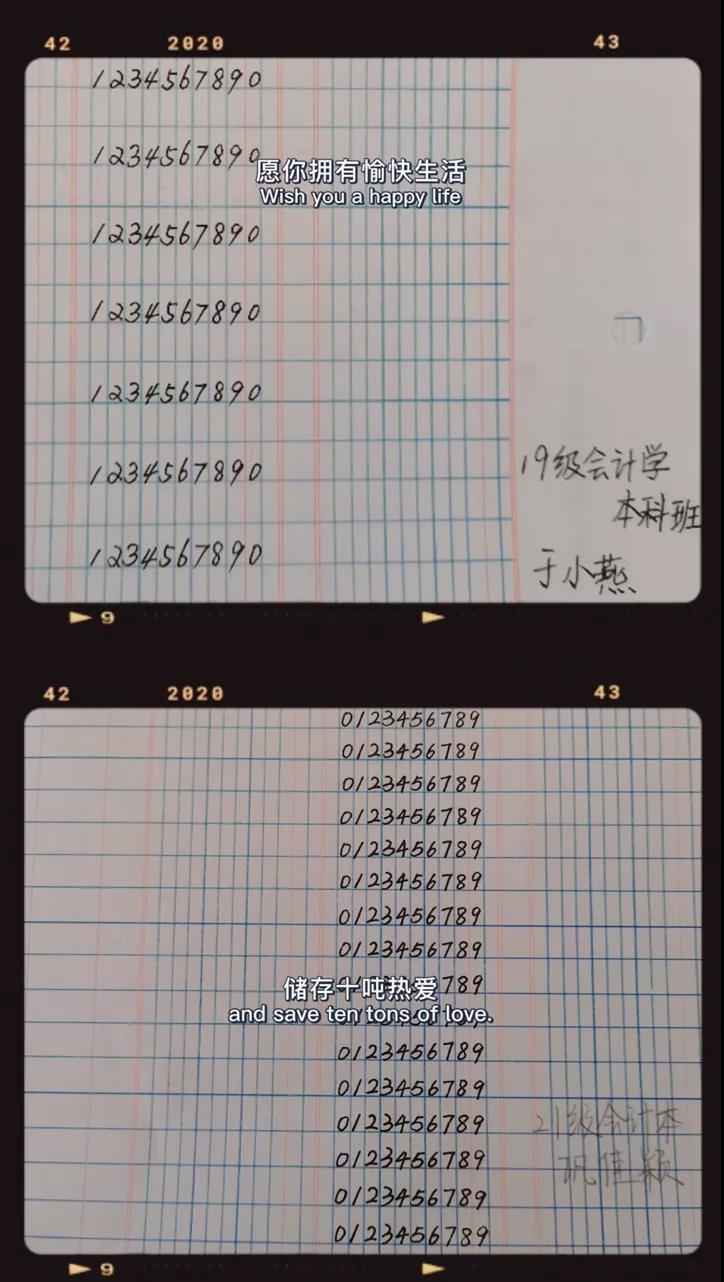 42 2020 43
1234567890
1234567890
愿你拥有愉快生活
Wish you a happy life
1234567890
1234567890
1234567890
1234567890
19级会计学
本科班
1234567890
于小燕
9
42 2020 43
0123456789
0123456789
0123456789
0123456789
0123456789
0123456789
0123456789
0123456789
789
储存十吨热爱
and save ten tons of love.
0123456789
0123456789
0123456789
21级会计本
0123456789
巩佳颖
0123456789
0123456789
9